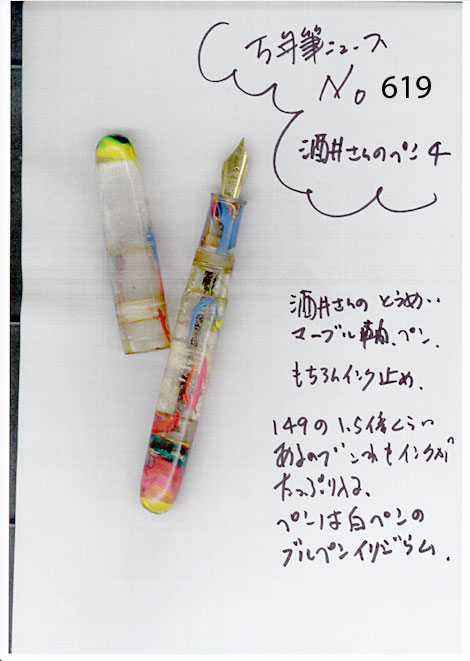 万年筆ニュース
No 619
酒井さんのペン 4
酒井さんの とうめい
マーブル軸、ペン、
もちろんインク止め、
149の1.5倍くらい
あるのでとてもインクが
たっぷり入る、
ペンは白ペンの
ブルペンイリジウム、